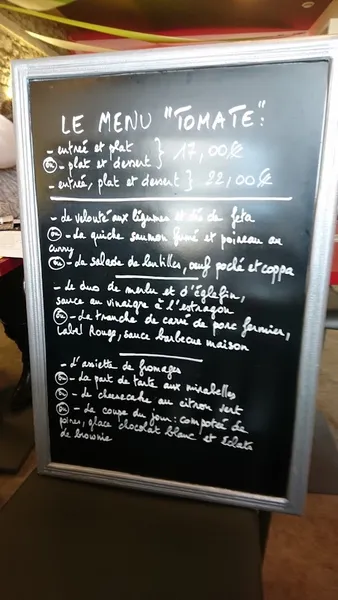 LE MENU "TOMATE":
- entrée et plat } 17,00€
ou - plat et dessert }
- entrée, plat et dessert } 22,00€
- de velouté aux légumes et dés de feta
ou - La quiche saumon fumé et poireau au
curry
ou - La salade de lentilles, œuf poché et coppa
- Le duo de merlu et d'Églefin,
sauce au vinaigre à l'estragon
ou - La tranche de carré de porc fermier,
Label Rouge, sauce barbecue maison
- L'assiette de fromages
ou - La part de tarte aux mirabelles
ou - Le cheesecake au citron vert
ou - La coupe du jour: compotée de
poires, glace chocolat blanc et Eclats
de brownie